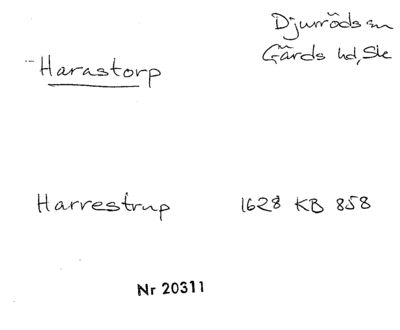 Djurröds sn
Gärds hd, Sk
Harastorp
Harrestrup 1628 KB 858
Nr 20311